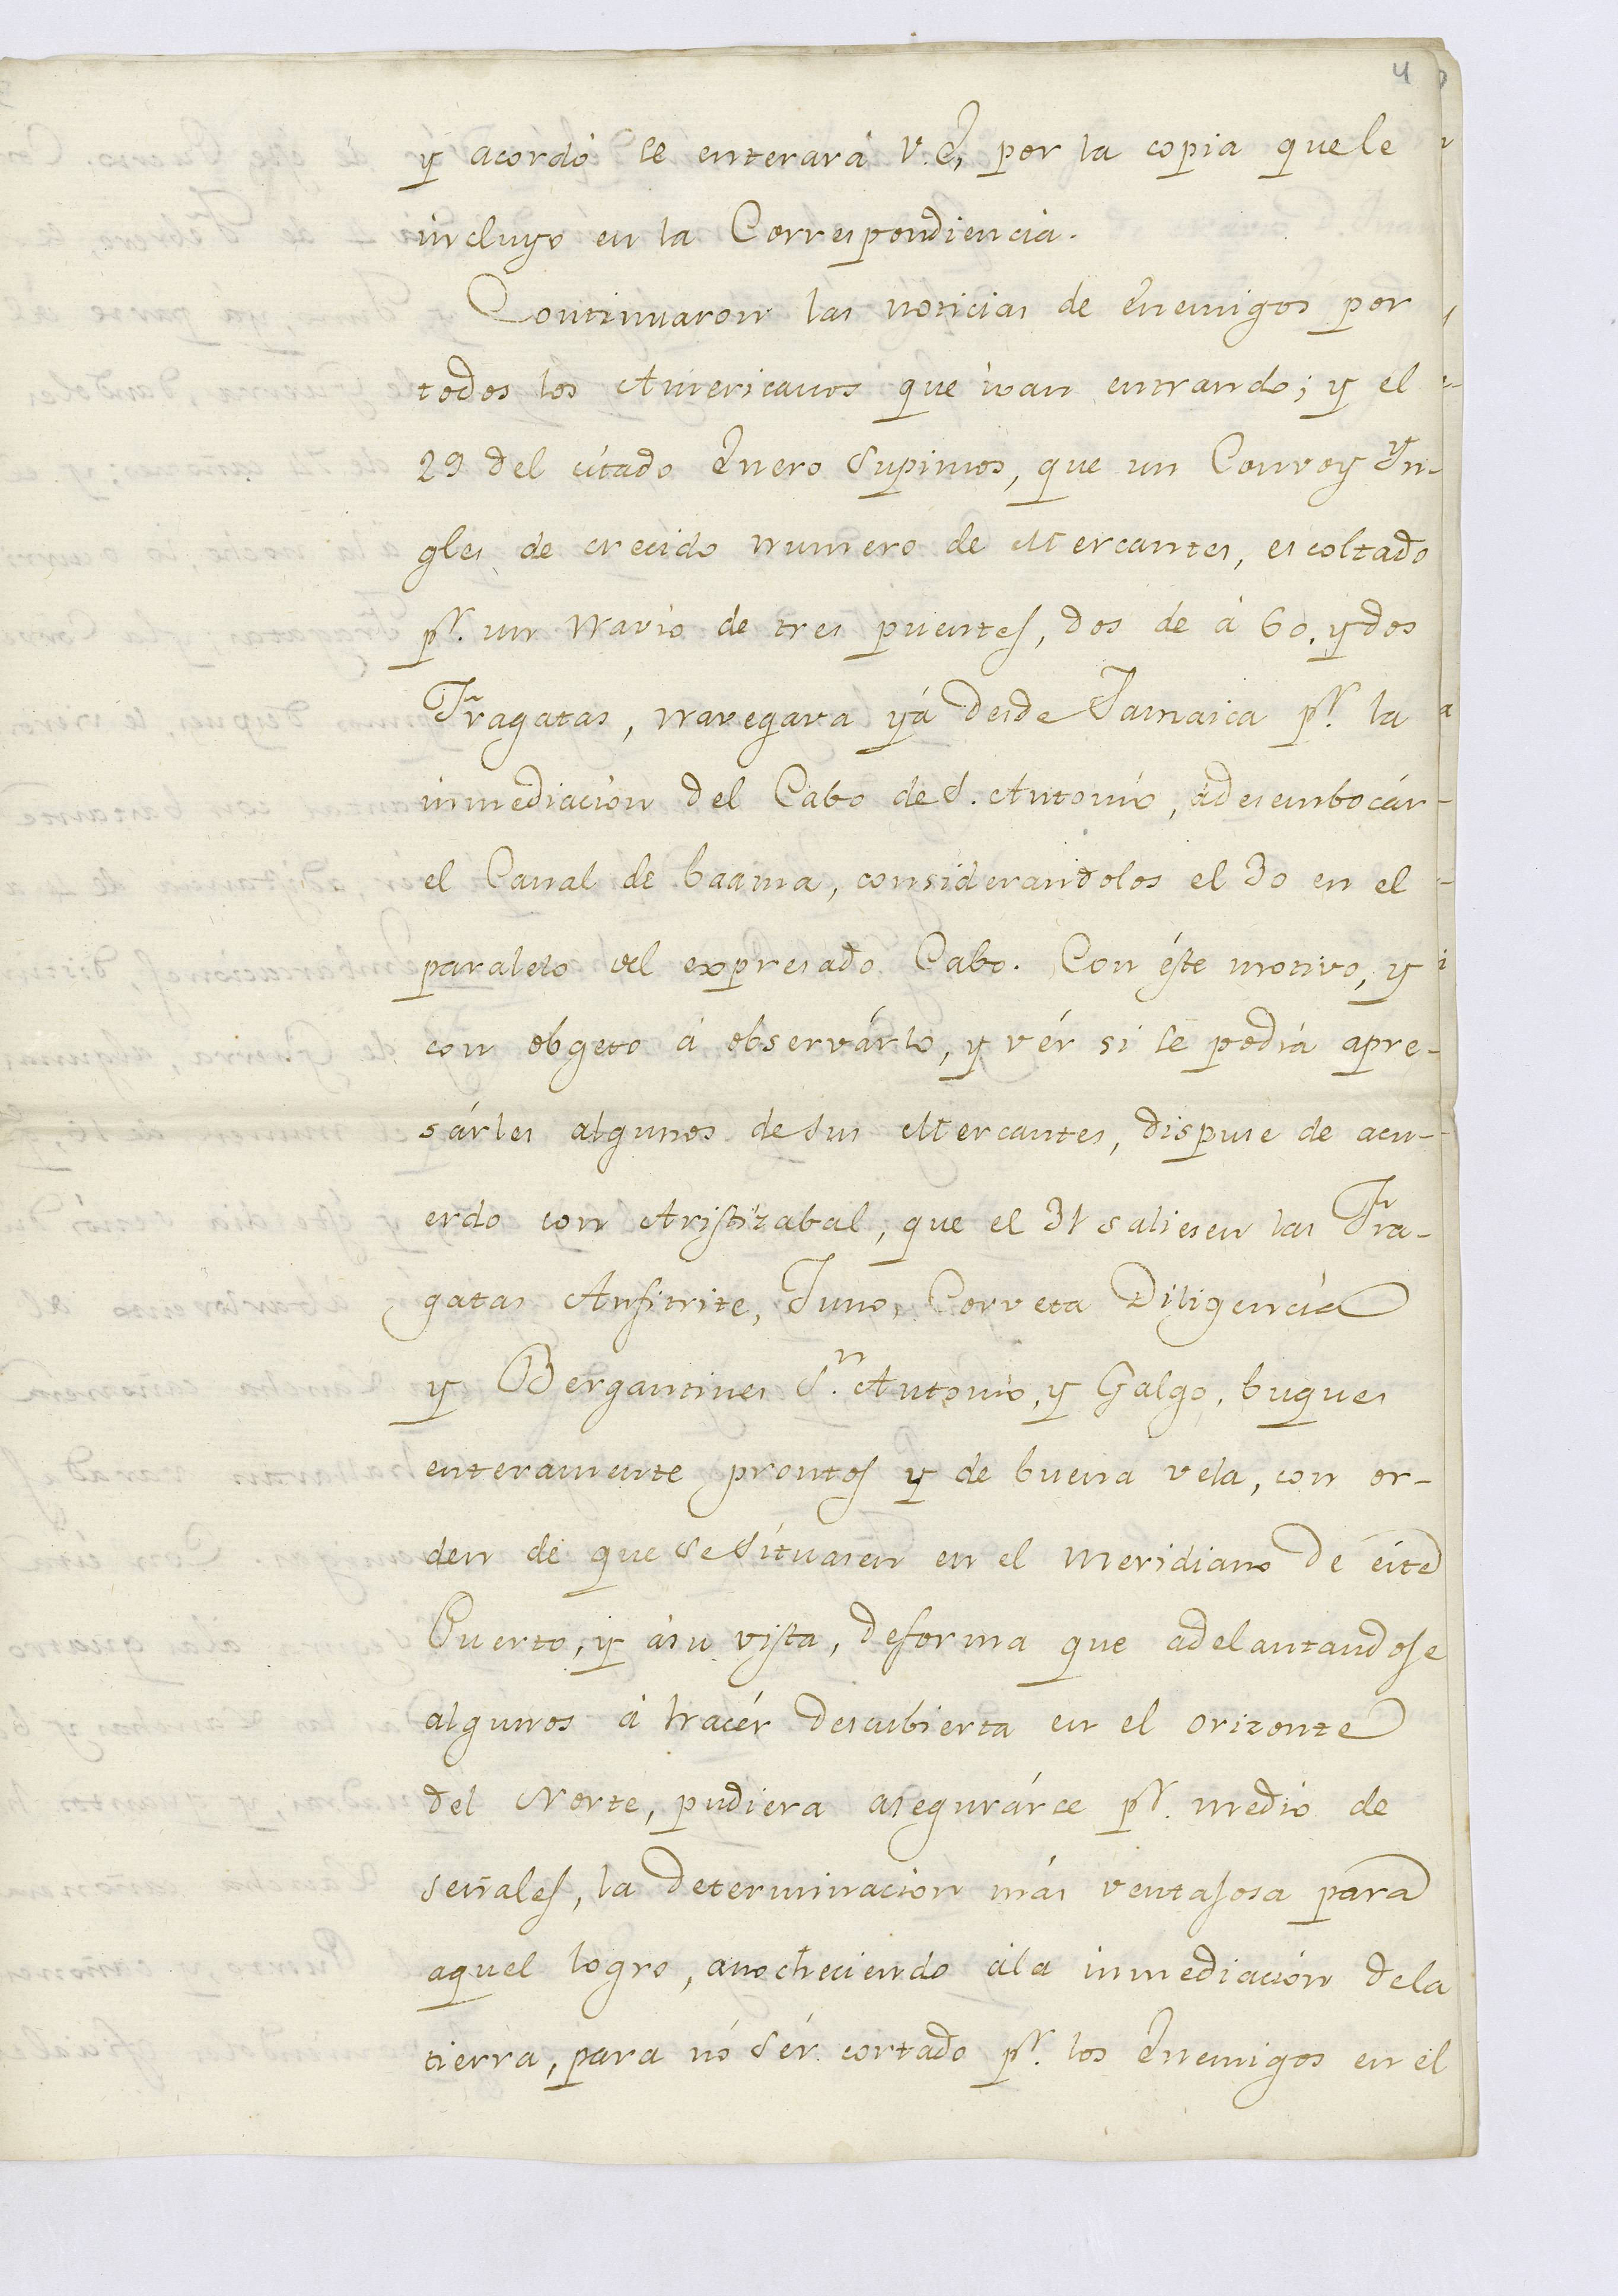 4
y acordó se enterará V.E, por la copia quele
incluyo en la Correspondiencia.
Continuaron las noticias de Enemigos por
todos los Americanos que ivan entrando; y el
29 del citado Enero Supimos, que un Convoy Yn-
gles de crecido numero de Mercantes, escoltado
pr. un Navio de tres puentes, dos de á 60. y dos
Fragatas, navegava yá desde Jamaica pr. la
inmediacion del Cabo de S. Antonio, à desembocár
el Canal de baama, considerandolos el 30 en el
paralelo del expresado Cabo. Con éste motivo, y
con obgeto á observárlo, y vér si se podiá apre-
sárles algunos de sus Mercantes, dispuse de acu-
erdo con Aristizabal, que el 31 saliesen las Fra-
gatas Anfitrite, Juno, Corveta Diligencia
y Bergantines Sn. Antonio, y Galgo, buques
enteramente prontos y de buena vela, con or-
den de que se Situasen en el meridiano de éste
Puerto, y ásu vista, deforma que adelantandose
algunos á hacér descubierta en el orizonte
del Norte, pudiera asegurárce pr. medio de
señales, la determinacion más ventajosa para
aquel logro, anocheciendo ála inmediacion dela
tierra, para nó Sér cortado pr. los Enemigos en el